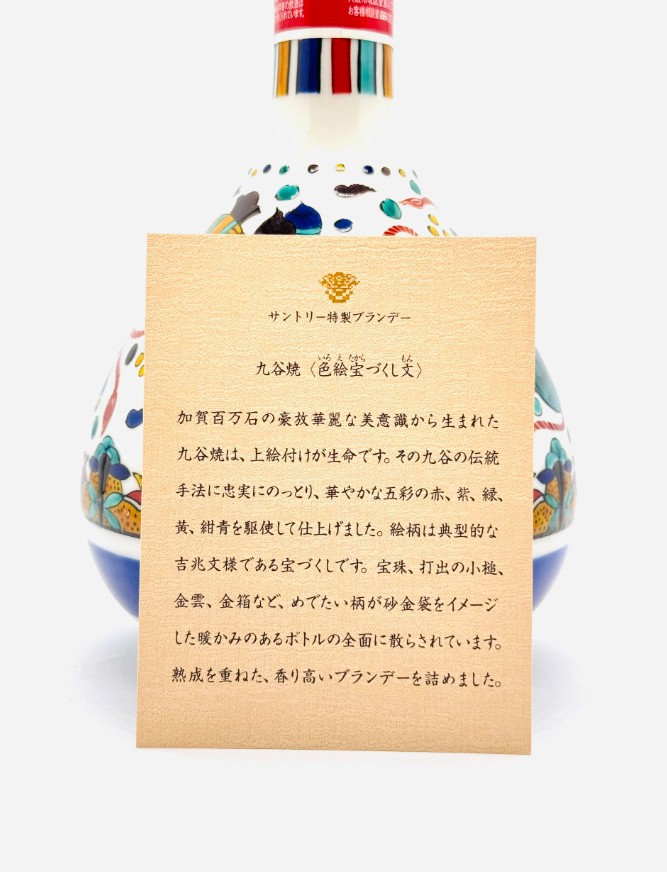 されています。
お客様相談室
サントリー特製ブランデー
九谷焼〈色絵宝づくし文〉
いろ え たから もん
加賀百万石の豪放華麗な美意識から生まれた
九谷焼は、上絵付けが生命です。その九谷の伝統
手法に忠実にのっとり、華やかな五彩の赤、紫、緑、
黄、紺青を駆使して仕上げました。絵柄は典型的な
吉兆文様である宝づくしです。宝珠、打出の小槌、
金雲、金箱など、めでたい柄が砂金袋をイメージ
した暖かみのあるボトルの全面に散らされています。
熟成を重ねた、香り高いブランデーを詰めました。